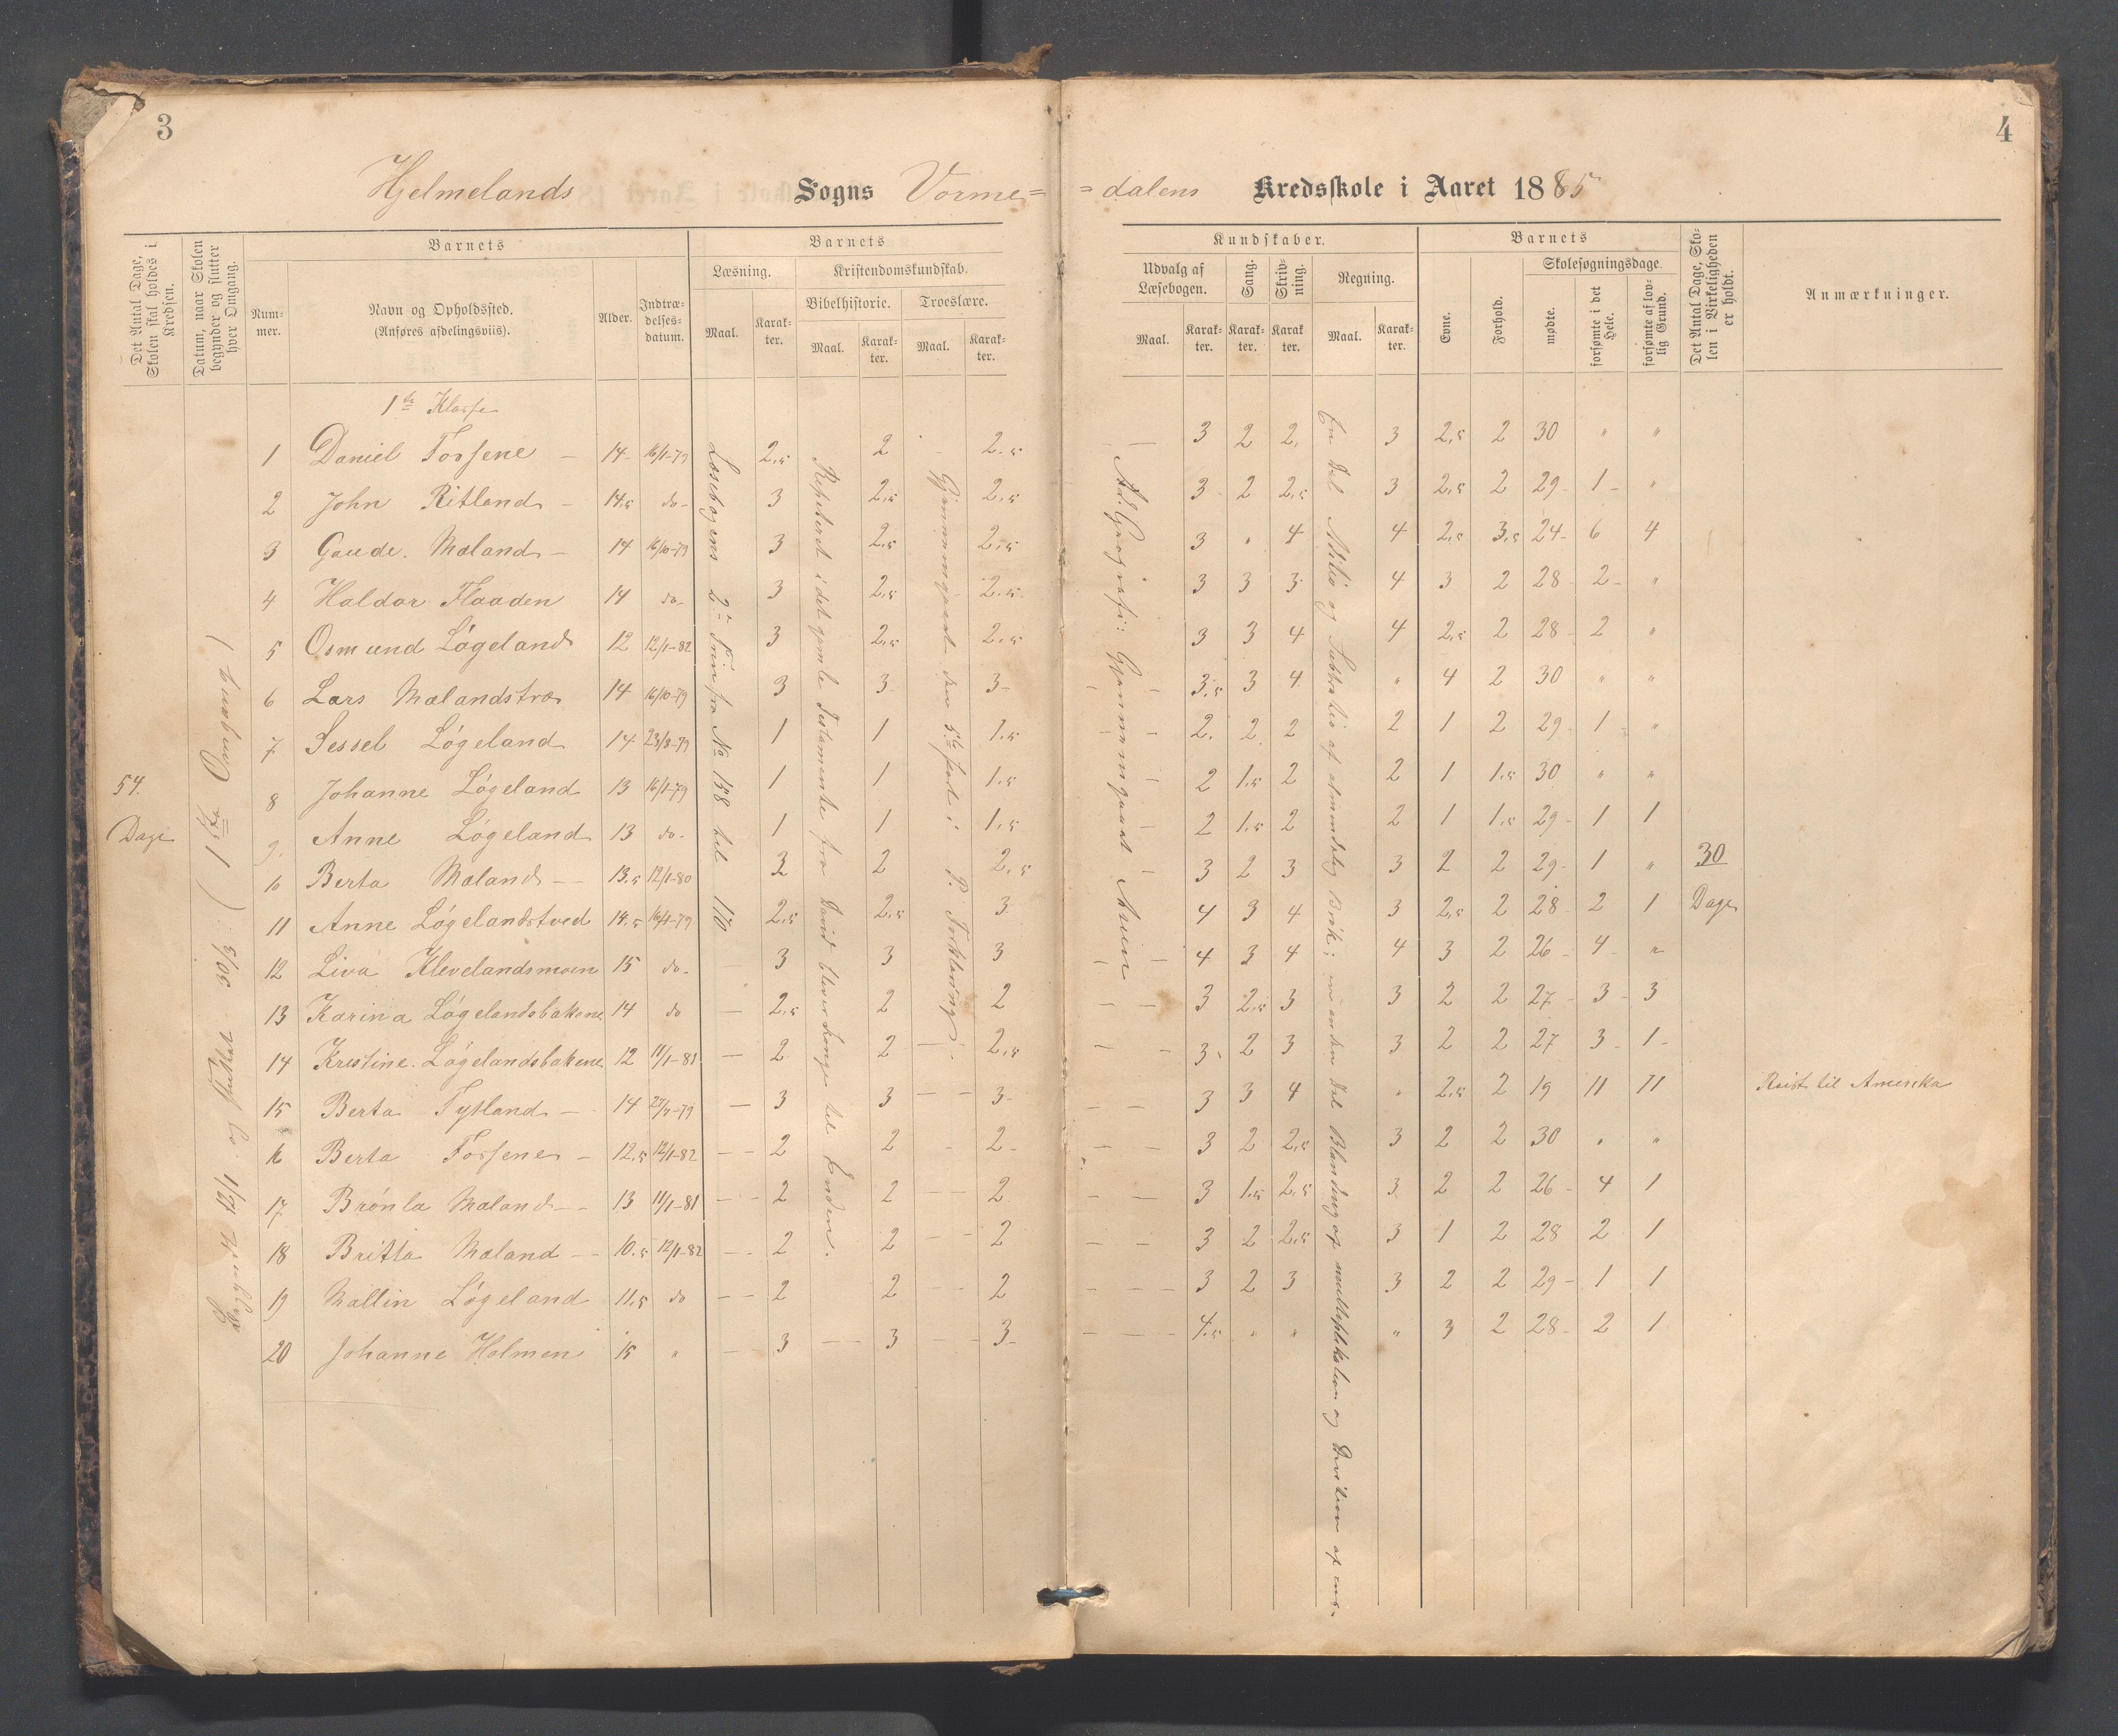 3
4
Hjelmelands Sogns Vorme= =dalens Kredsskole i Aaret 1885
Det Antal Dage, Skolen skal holdes i Kredsen.
Datum, naar Skolen begynder og slutter hver Omgang.
Barnets
Num-mer.
Navn og Opholdssted.
(Anføres afdelingsviis).
Alder.
Indtræ-delses-datum.
Barnets
Læsning.
Maal.
Karak-ter.
Kristendomskundskab.
Bibelhistorie.
Maal.
Karak-ter.
Troeslære.
Maal.
Karak-ter.
Kundskaber.
Udvalg af Læsebogen.
Maal.
Karak-ter.
Sang.
Karak-ter.
Skriv-ning.
Karak ter.
Regning.
Maal.
Karak-ter.
Barnets
Evne.
Forhold.
Skolesøgningsdage.
mødte.
forsømte i det Hele.
forsømte af lov-lig Grund.
Det Antal Dage, Sko-len i Virkeligheden er holdt.
Anmærkninger.
1ste Klasse
1 Daniel Fossene – 14 16/1-79 2,5 2 2,5 3 2 2 3 2,5 2 30 " "
2 John Ritland – 14,5 do 3 2,5 2,5 3 2 2,5 3 2,5 2 29 1 "
3 Gaude Mæland – 14 16/10-79 3 2,5 2,5 3 " 4 4 2,5 3,5 24 6 4
4 Haldor Flaaden 14 do 3 2,5 2,5 3 3 3 4 3 2 28 2 "
5 Osmund Løgeland 12 12/1-82 3 2,5 2,5 3 3 4 4 2,5 2 28 2 "
6 Lars Mælandstræ 14 16/10-79 3 3 3 3,5 3 4 " 4 2 30 " "
7 Sessel Løgeland 14 23/3-79 1 1 1,5 2 2 2 2 1 2 29 1 "
8 Johanne Løgeland 13 16/1-79 1 1 1,5 2 1,5 2 2 1 1,5 30 " "
9 Anne Løgeland 13 do 1 1 1,5 2 1,5 2 2 1 1,5 29 1 1
10 Berta Mæland 13,5 12/1-80 3 2 2,5 3 2 3 3 2 2 29 1 "
11 Anne Løgelandstved 14,5 16/1-79 2,5 2,5 3 4 3 4 3 2,5 2 28 2 1
12 Liva Klevelandsmoen 15 do 3 3 3 4 3 4 4 3 2 26 4 "
13 Karina Løgelandsbakene 14 do 2,5 2 2 3 2,5 3 3 2 2 27 3 3
14 Kristine Løgelandsbakene 12 11/1-81 2 2 2,5 3 2 3 3 2 2 27 3 1
15 Berta Tytland 14 3 3 3 3 3 4 " 2,5 2 19 11 11 Reist til Amerika
16 Berta Fossene 12,5 12/1-82 2 2 2 3 2 2,5 3 2 2 30 " "
17 Brønla Mæland 13 11/1-81 2 2 2 3 1,5 2,5 3 2 2 26 4 1
18 Britta Mæland 10,5 12/1-82 2 2 2 3 2 2,5 3 1 2 28 2 1
19 Mallin Løgeland 11,5 do 2 2 2 3 2 3 3 2 2 29 1 1
20 Johanne Holmen 15 " 3 3 3 4,5 " " " 3 2 28 2 1
54.
Dage
30
Dage
(1ste Omgang)
Læsebogens 2 Trin fra No 158 til 170
Repiteret i det gamle Testamente fra David blever Konge til Enden.
Gjennemgaaet den 5te Part i P. Forklaring
Geografi: Gjennemgaaet Asien
En Del Adition og Subtration af almindelig Brøk; en anden Del Blanding af multiplikation og Division af